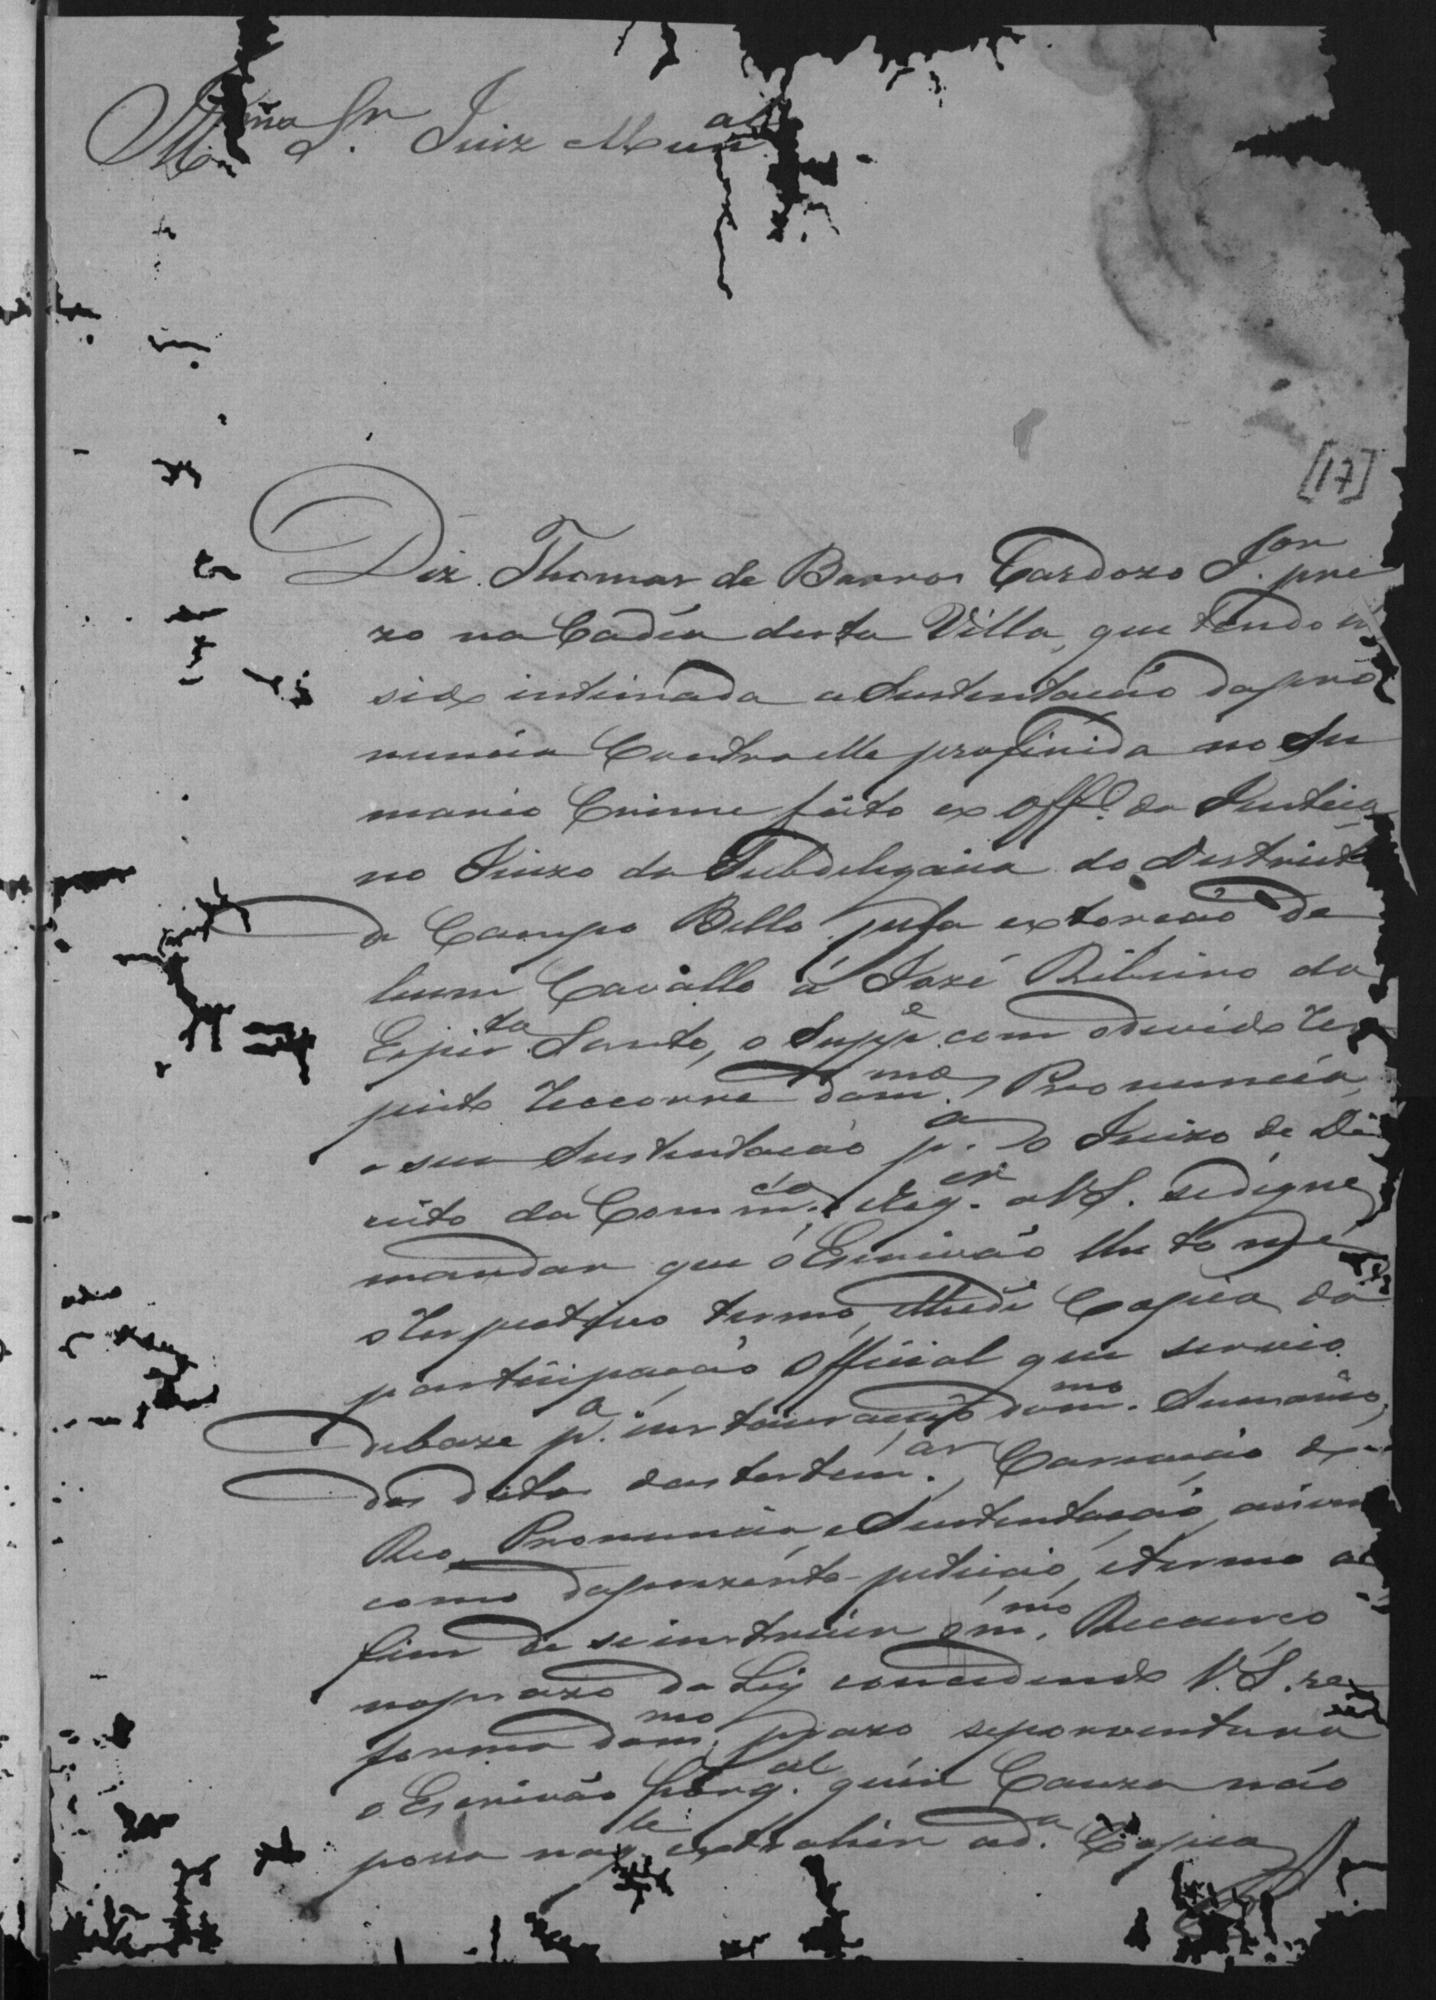 Illmo Snr. Juiz Munal
[17]
Diz Thomas de Barros Cardozo Jor. pre
zo na Cadêa desta Villa, que tendo
sido intimada a Sustentacão da pro
nuncia Contra elle proferida no Su
mario Crime feito ex Offo. da Justiça
no Juizo da Subdelegacia do Destricto
de Campo Bello pela extorcão de
hum Cavallo á José Ribeiro do
Espirto. Santo, o Suppe. com o devido res
peito recorre dam.ma Pronuncia,
e sua Sustentacão pa. o Juizo de Di
reito da Commca. e Reqer. a V.S. se digne
mandar que o Escrivão lhe tome
o respectivo termo, e lhe dê Copia da
participacão Official que servio
de baze pa. instauracão dom.mo Sumario,
dos ditos das testemas., Confissão do
Reo, Pronuncia, e Sustentacão, assim
como da prezente peticão, e termo a
fim de se instruir o m.mo Recurso
no prazo da Ley concedendo V.S. re
forma dom.mo prazo se por ventura
o Escrivão por qal. quér Cauza não
possa nafte extrahir a da. Copia